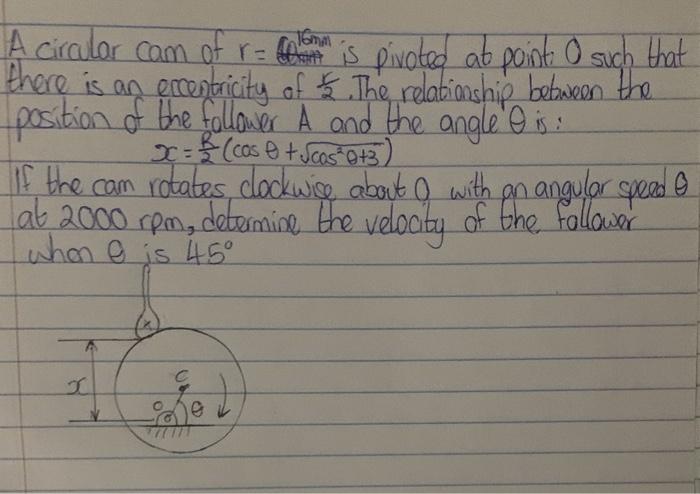 A circular cam of r = 16mm is pivoted at point O such that
there is an eccentricity of r/2. The relationship between the
position of the follower A and the angle θ is:
x = R/2 (cos θ + √cos²θ+3)
If the cam rotates clockwise about O with an angular speed θ
at 2000 rpm, determine the velocity of the follower
when θ is 45°
x
C
O
θ